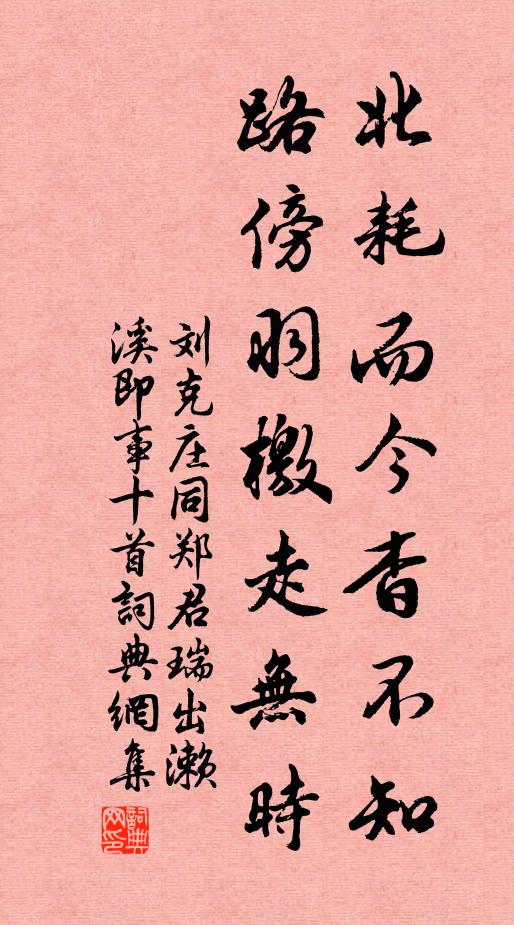 北耗而今杳不知
路傍羽檄走無時
刘克庄同郑君瑞出濑
溪即事十首詞典網集
詞典
网印